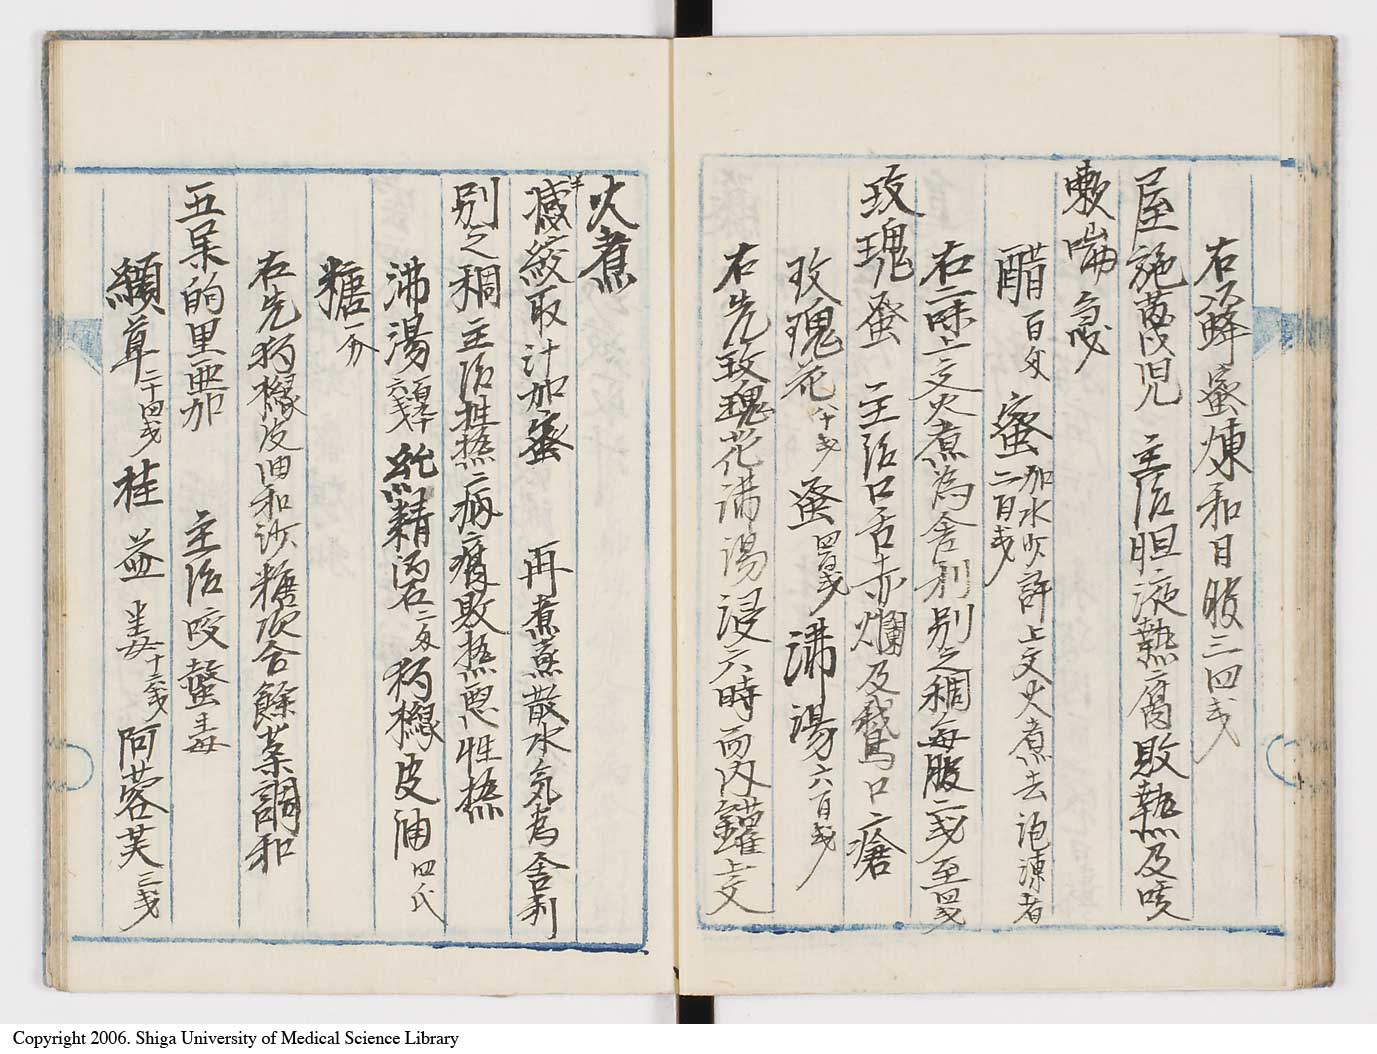 右品解蜜煉和日服三四戔
屋施蔑児 主治胆液熱腐敗熱及咳
嗽喘急嗄
醋百匁 蜜二百戔 加水少許上文火煮去泡凍者
右二味上文火煮為舎利別之稠毎服二戔至四戔
玫瑰蜜 主治口舌赤爛及鵞口瘡
玫瑰花八十戔 蜜四百戔 沸湯六百戔
右先玫瑰花沸湯浸六時而内鑵上文
火煮
減半絞取汁加蜜 再煮蒸散水気為舎利
別之稠 主治性熱病腐敗熱悪性熱
沸湯 精 二匁 枸櫞皮油四氏
糖一分
右先枸櫞皮油和沙糖次合餘薬調和
五杲的里亜加 主治咬螫毒
纈草二十四戔 桂 姜十六戔 阿蓉芙三戔
Copyright 2006. Shiga University of Medical Science Library